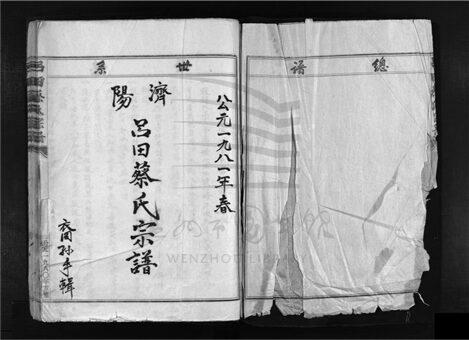 總譜
公元一九八一年春
世系
濟陽
呂田蔡氏宗譜
裔孫手輯
溫州市圖書館
WENZHOU LIBRARY